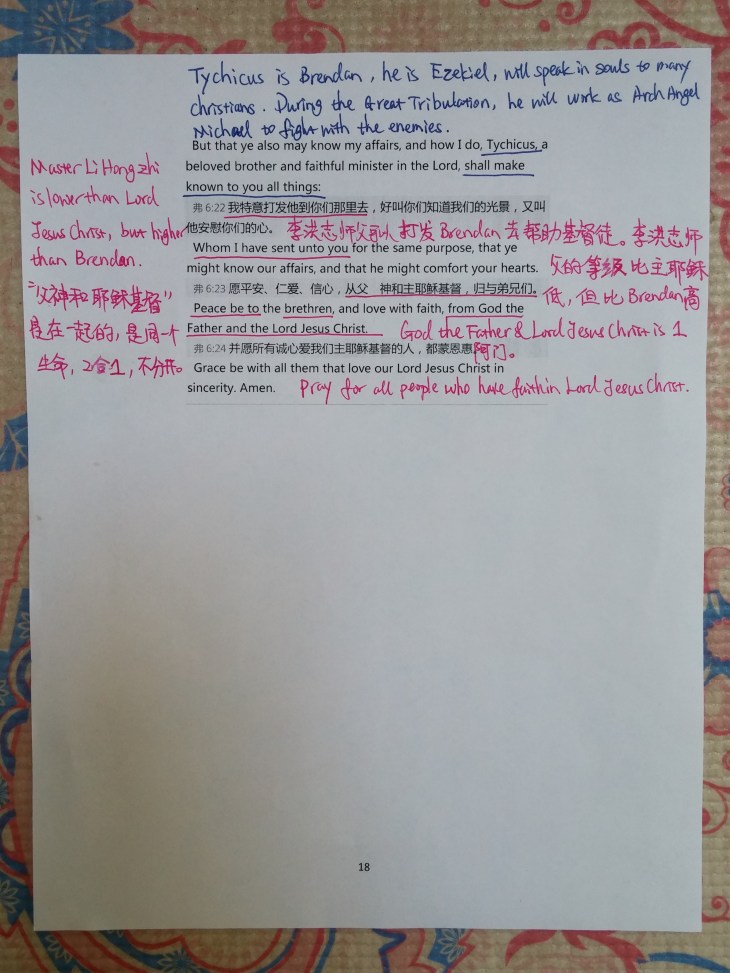 Tychicus is Brendan, he is Ezekiel, will speak in souls to many
christians. During the Great Tribulation, he will work as ArchAngel
Michael to fight with the enemies.
But that ye also may know my affairs, and how I do, Tychicus, a
beloved brother and faithful minister in the Lord, shall make
known to you all things:
弗 6:22 我特意打发他到你们那里去，好叫你们知道我们的光景，又叫
他安慰你们的心。
李洪志师父可以打发Brendan去帮助基督徒。李洪志师
父的等级比主耶稣
低，但比Brendan高
Whom I have sent unto you for the same purpose, that ye
might know our affairs, and that he might comfort your hearts.
弗 6:23 愿平安、仁爱、信心，从父　神和主耶稣基督，归与弟兄们。
Peace be to the brethren, and love with faith, from God the
Father and the Lord Jesus Christ.
God the Father & Lord Jesus Christ is 1
弗 6:24 并愿所有诚心爱我们主耶稣基督的人，都蒙恩惠
阿门。
Grace be with all them that love our Lord Jesus Christ in
sincerity. Amen.
Pray for all people who have faith in Lord Jesus Christ.
Master Li Hongzhi
is lower than Lord
Jesus Christ, but higher
than Brendan.
"父神和耶稣基督"
是在一起的，是同一个
生命，2合1，不分开。
18